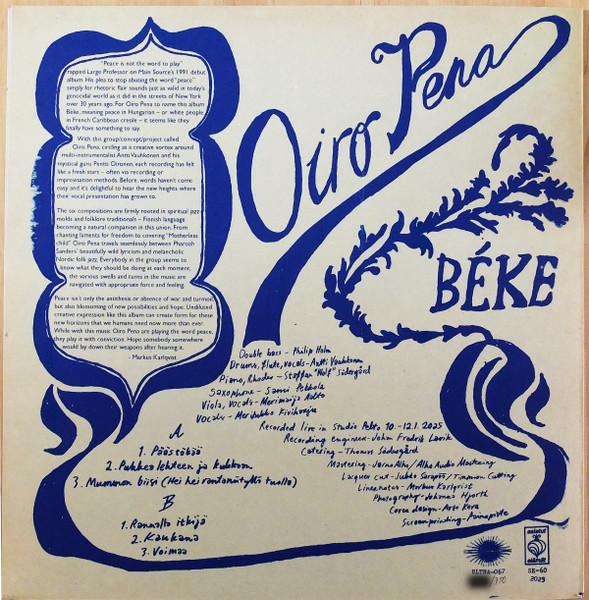 "Peace is not the word to play"
rapped Large Professor on Main Source's 1991 debut
album. His plea to stop abusing the word "peace"
simply for rhetoric flair sounds just as valid in today's
genocidal world as it did in the streets of New York
over 30 years ago. For Oiro Pena to name this album
Béke, meaning peace in Hungarian – or white people
in French Caribbean creole – it seems like they
finally have something to say.
With this group/concept/project called
Oiro Pena, circling as a creative vortex around
multi-instrumentalist Antti Vauhkonen and his
mystical guru Pentti Oironen, each recording has felt
like a fresh start – often via recording or
improvisation methods. Before, words haven't come
easy and it's delightful to hear the new heights where
their vocal presentation has grown to.
The six compositions are firmly rooted in spiritual jazz
molds and folklore traditionals – Finnish language
becoming a natural companion in this union. From
chanting laments for freedom to covering "Motherless
child" Oiro Pena travels seamlessly between Pharoah
Sanders' beautifully wild lyricism and melancholic
Nordic folk jazz. Everybody in the group seems to
know what they should be doing at each moment,
the various swells and turns in the music are
navigated with appropriate force and feeling.
Peace isn't only the antithesis or absence of war and turmoil,
but also blossoming of new possibilities and hope. Undiluted
creative expression like this album can create form for these
new horizons that we humans need now more than ever!
While with this music Oiro Pena are playing the word peace,
they play it with conviction. Hope somebody somewhere
would lay down their weapons after hearing it.
- Markus Karlqvist
Oiro Pena
BÉKE
Double bass - Philip Holm
Drums, flute, vocals - Antti Vauhkonen
Piano, Rhodes - Staffan "Wolf" Södergård
Saxophone - Sami Pekkola
Viola, Vocals - Merimaija Aalto
Vocals - Merikukka Kiviharju
Recorded live in Studio Pelto 10.-12.1. 2025
Recording engineer - John Fredrik Lavik
Catering - Thomas Södergård
Mastering - Jarno Alho / Alho Audio Mastering
Lacquer cut - Jukka Sarapää / Timmion Cutting
Linernotes - Markus Karlqvist
Photography - Johannes Hjorth
Cover design - Arsi Keva
Screenprinting - Painopiste
A
1. Päästäjä
2. Pukkeo lehteen ja kukkaan
3. Mumman biisi (Hei hei rantaniityltä tuolla)
B
1. Rannalla itkijä
2. Kaukana
3. Voimaa
ULTRA-067
/350
SE-60
2025